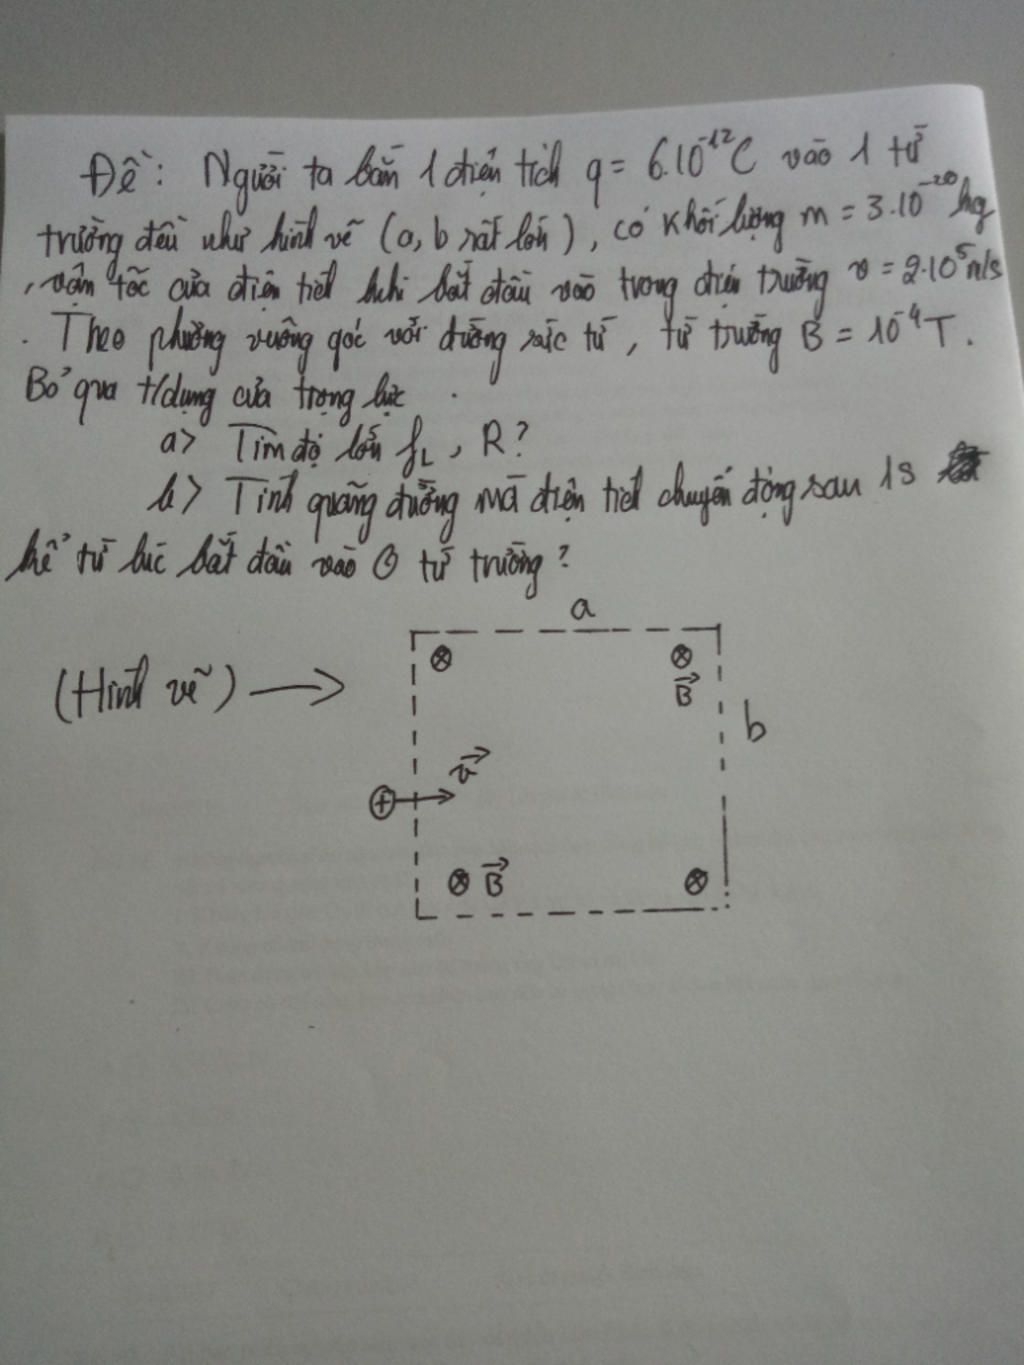 Đề: Người ta bắn 1 điện tích q = 6.10⁻¹²C vào 1 từ
trường đều như hình vẽ (a, b rất lớn), có khối lượng m = 3.10⁻²⁰ kg
, vận tốc của điện tích khi bắt đầu vào trong điện trường v = 2.10⁵m/s
. Theo phương vuông góc với đường sức từ, từ trường B = 10⁻⁴T.
Bỏ qua t/dụng của trọng lực.
a> Tìm độ lớn fL, R?
b> Tính quãng đường mà điện tích chuyển động sau 1s
kể từ lúc bắt đầu vào từ trường?
a
(Hình vẽ) →
⊗ ⊗
B⃗
b
v⃗
⊕
⊗ B⃗ ⊗